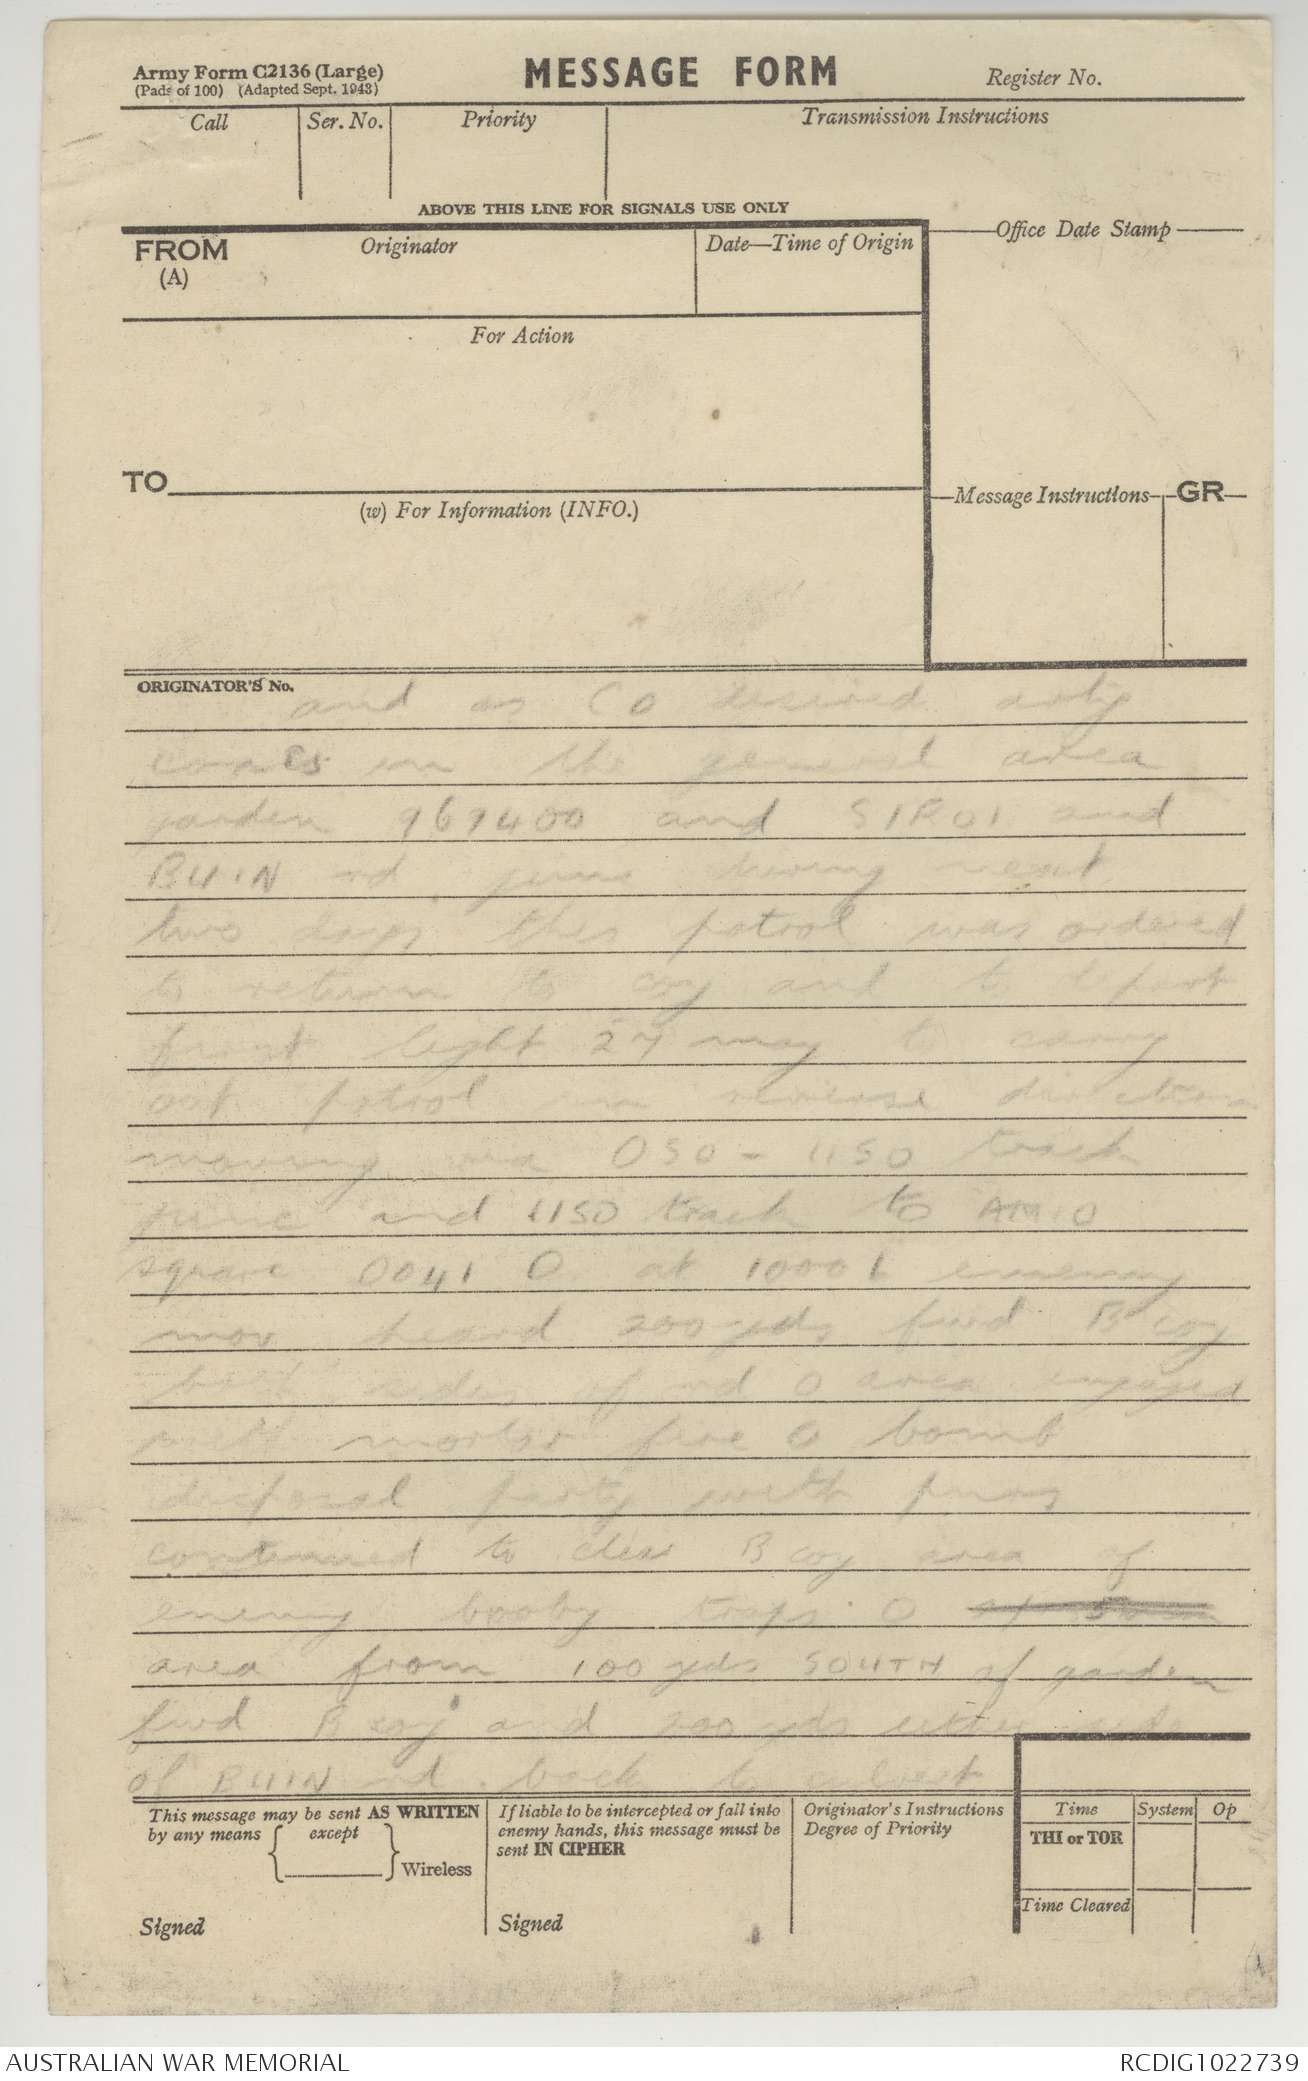 Army Form C2136 (Large)
(Pads of 100) (Adapted Sept. 1943)
MESSAGE FORM
Register No.
Call
Ser. No.
Priority
Transmission Instructions
ABOVE THIS LINE FOR SIGNALS USE ONLY
FROM
(A)
Originator
Date—Time of Origin
Office Date Stamp
For Action
TO
(w) For Information (INFO.)
Message Instructions
GR
ORIGINATOR'S No.
and as CO desired arty
in the general area
garden 969400 and SIROI and
BUIN rd junc during next
two days this patrol was ordered
to return to coy and to depart
first light 27 may to carry
out patrol in reverse direction
moving via OSO - IISO track
junc and IISO track to AMIO
square 0041 O at 1000 L enemy
mov heard 200 yds fwd B coy
both sides of rd O area engaged
with mortar fire O bomb
disposal party with pnrs
continued to clear B coy area of
enemy booby traps O
area from 100 yds SOUTH of garden
fwd B coy and 200 yds either side
of BUIN rd back to culvert
This message may be sent AS WRITTEN
by any means { except } Wireless
Signed
If liable to be intercepted or fall into
enemy hands, this message must be
sent IN CIPHER
Signed
Originator's Instructions
Degree of Priority
Time
System
Op
THI or TOR
Time Cleared
AUSTRALIAN WAR MEMORIAL
RCDIG1022739